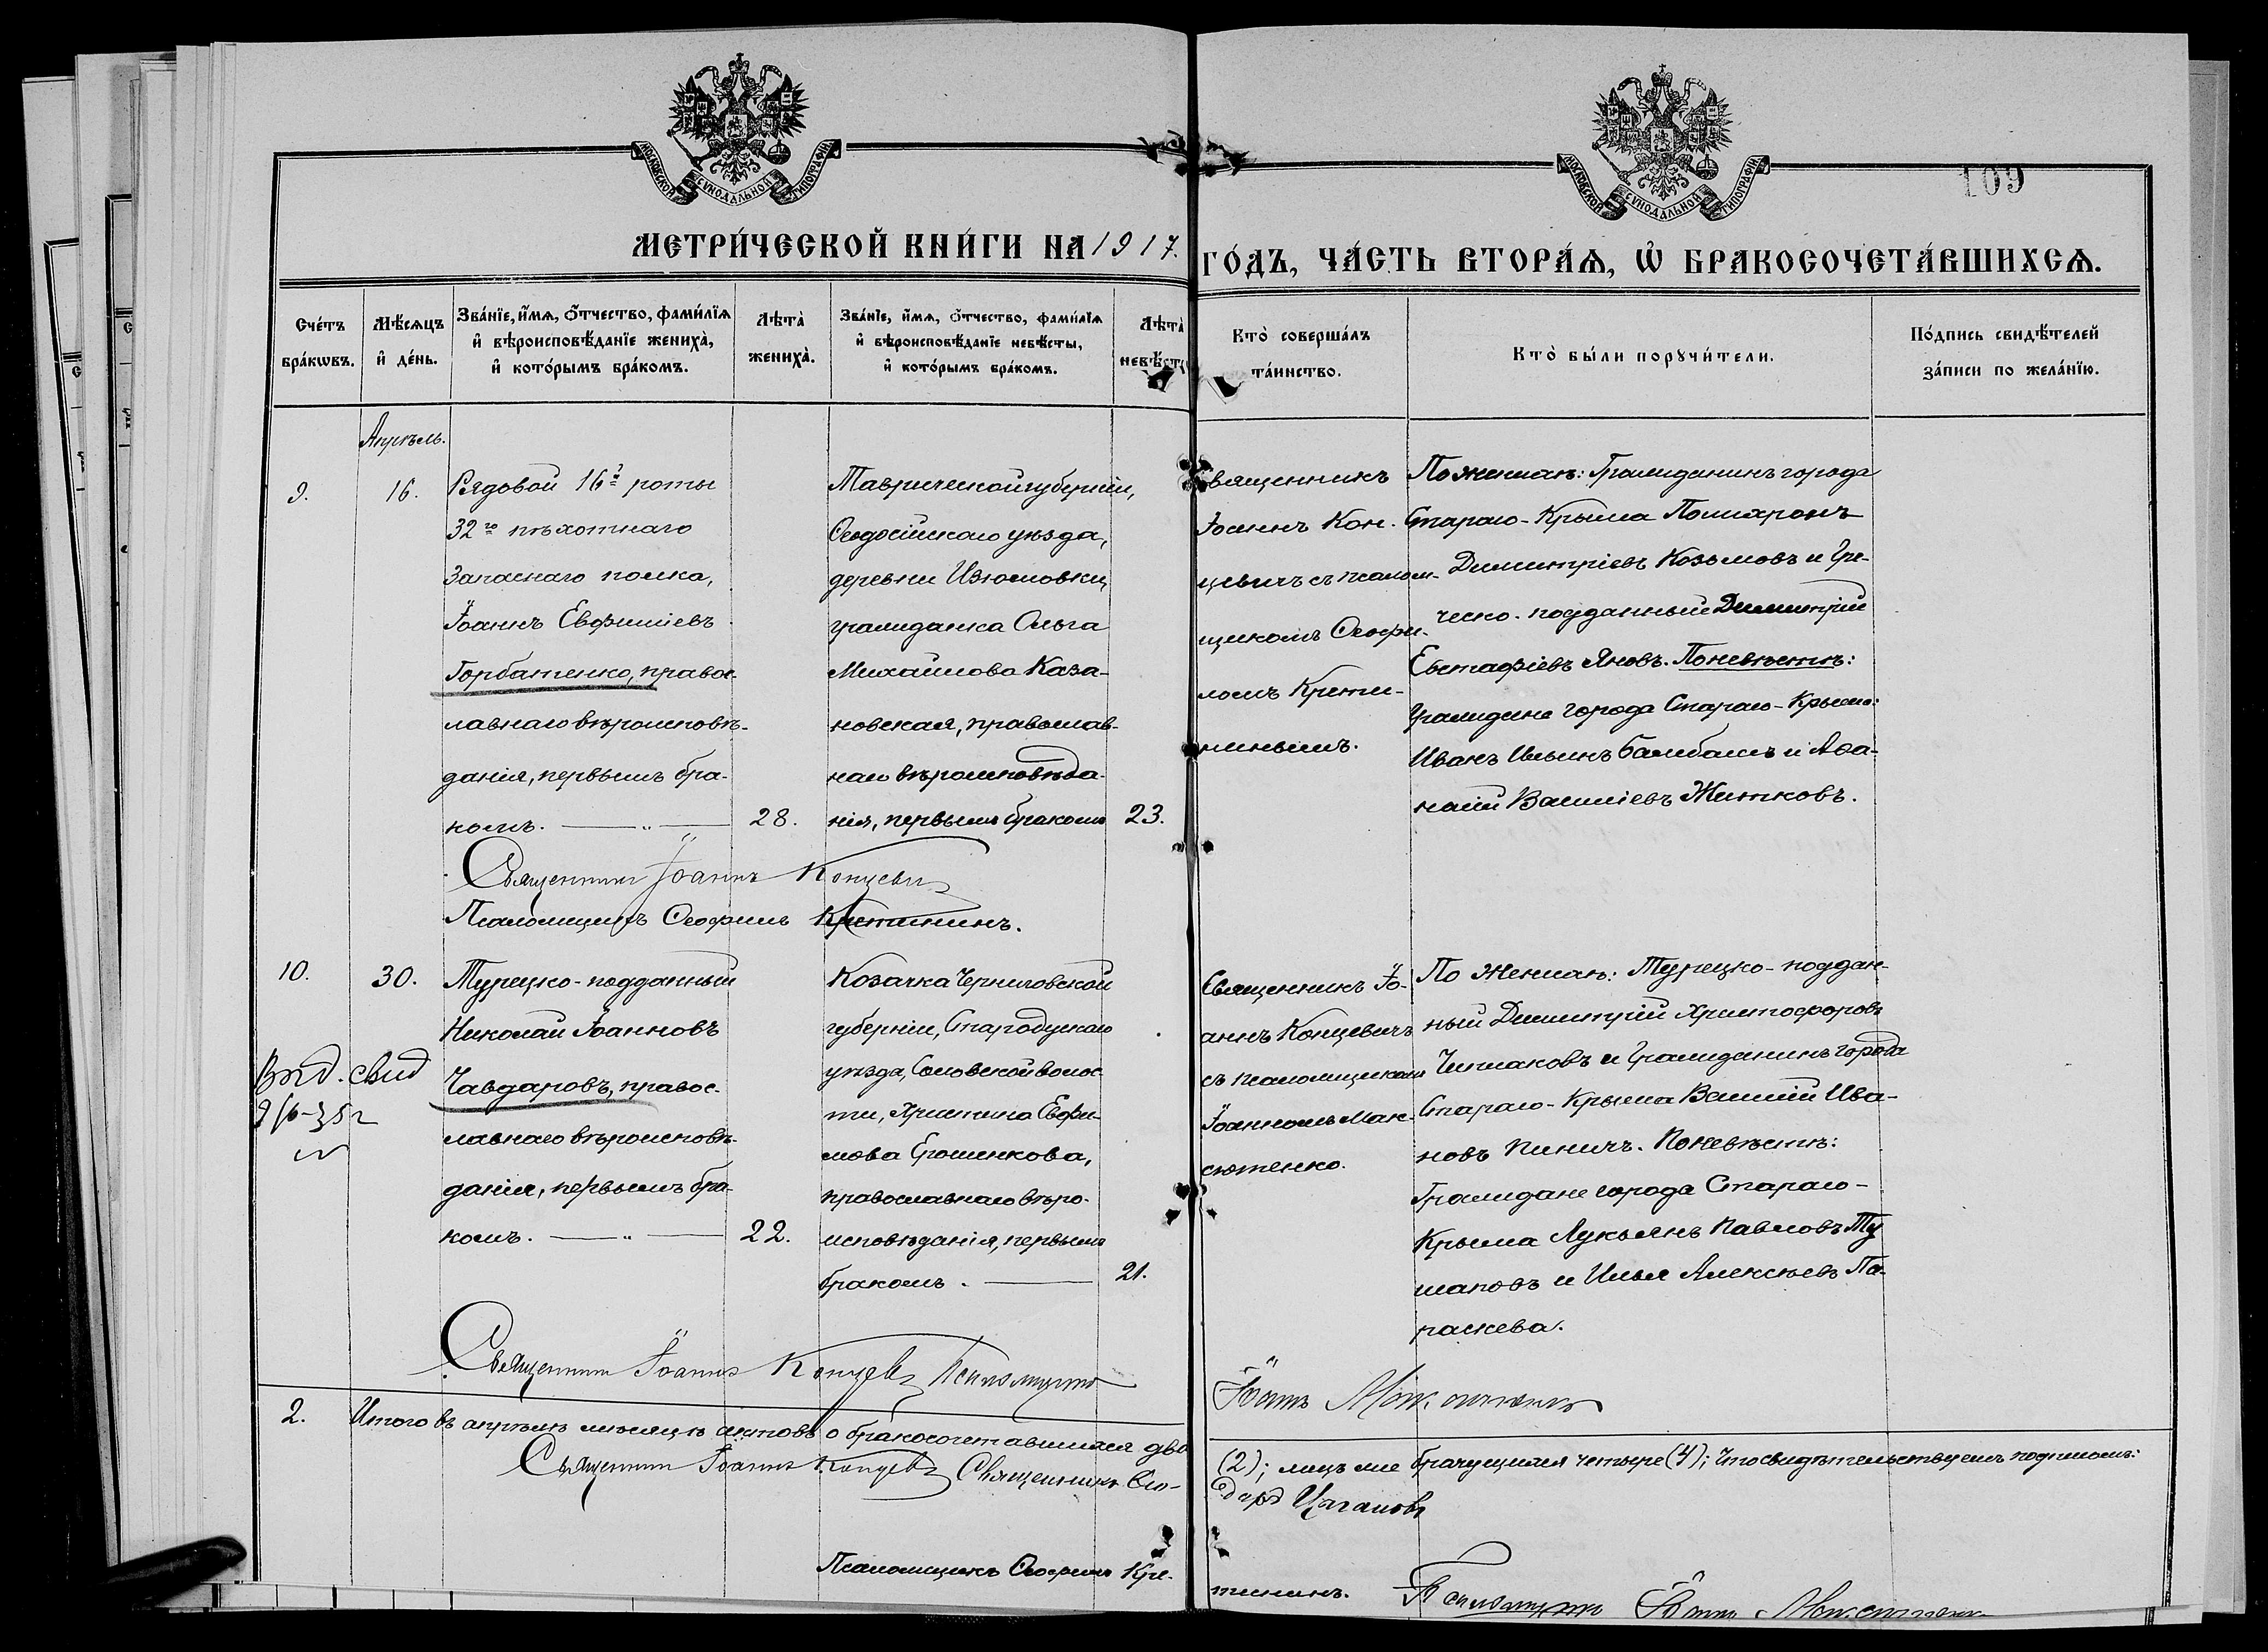 МОСКОВСКОЙ СУНОДАЛЬНОЙ ТИПОГРАФІИ
МОСКОВСКОЙ СУНОДАЛЬНОЙ ТИПОГРАФІИ
109
МЕТРИ́ЧЕСКОЙ КНИ́ГИ НА 1917. ГО́ДЪ, ЧА́СТЬ ВТОРА́Ѧ, Ѽ БРАКОСОЧЕТА́ВШИХСѦ.
Сче́тъ
бра́кѡвъ.
Мѣ́сѧцъ
и҆ де́нь.
Зва́нїе, и҆́мѧ, ѻ҆́тчество, фами́лїѧ
и҆ вѣроисповѣ́данїе жениха̀,
и҆ кото́рымъ бра́комъ.
Лѣта̀
жениха̀.
Зва́нїе, и҆́мѧ, ѻ҆́тчество, фами́лїѧ
и҆ вѣроисповѣ́данїе невѣ́сты,
и҆ кото́рымъ бра́комъ.
Лѣта̀
невѣ́сты
Кто̀ соверша́лъ
та́инство.
Кто̀ бы́ли порꙋчи́тели.
По́дпись свидѣ́телей
за́писи по жела́нїю.
Апрѣль.
9.
16.
Рядовой 16й роты
32го пѣхотнаго
Запаснаго полка,
Іоаннъ Евфиміевъ
Горбатенко, правос-
лавнаго вѣроисповѣ-
данія, первымъ бра-
комъ. — „ —
28.
Таврической губерніи,
Ѳеодосійскаго уѣзда,
деревни Изюмовки,
гражданка Ольга
Михайлова Каза-
новская, православ-
наго вѣроисповѣда-
нія, первымъ бракомъ
23.
Священникъ
Іоаннъ Кон-
цевичъ съ псалом-
щикомъ Ѳеофи-
ломъ Крети-
нинымъ.
По женихѣ: Гражданинъ города
Стараго-Крыма Поликронъ
Димитріевъ Козьмовъ и Гре-
ческо-подданный Димитрій
Евстафіевъ Яновъ. По невѣстѣ:
Граждане города Стараго-Крыма:
Иванъ Ильинъ Балабашъ и Аѳа-
насій Василіевъ Житковъ.
Священникъ Іоаннъ Концевичъ
Псаломщикъ Ѳеофилъ Кретининъ.
10.
30.
Выд. свид
Турецко-подданный
Николай Іоанновъ
Чавдаровъ, правос-
лавнаго вѣроисповѣ-
данія, первымъ бра-
комъ. — „ —
22.
Козачка Черниговской
губерніи, Стародубскаго
уѣзда, Соловской волос-
ти, Христина Евфи-
мова Ерошенкова,
православнаго вѣро-
исповѣданія, первымъ
бракомъ. —
21.
Священникъ Іо-
аннъ Концевичъ
съ псаломщикомъ
Іоанномъ Мак-
сютенко.
По женихѣ: Турецко-поддан-
ный Димитрій Христофоровъ
Чиплаковъ и Гражданинъ города
Стараго-Крыма Василій Ива-
новъ Киничъ. По невѣстѣ:
Граждане города Стараго-
Крыма Лукьянъ Павловъ Ту
шаповъ и Илья Алексѣевъ Па-
раскева.
Священникъ Іоаннъ Концевичъ Псаломщикъ Іоаннъ Максютенко
2.
Итого въ апрѣлѣ мѣсяцѣ актовъ о бракосочетавшихся два (2); лицъ же брачущихся четыре (4); что свидѣтельствуемъ подписомъ:
Священникъ Іоаннъ Концевичъ Священникъ Ѳео-
доръ Цагановъ
Псаломщикъ Ѳеофилъ Кре-
тининъ. Псаломщикъ Іоаннъ Максютенко